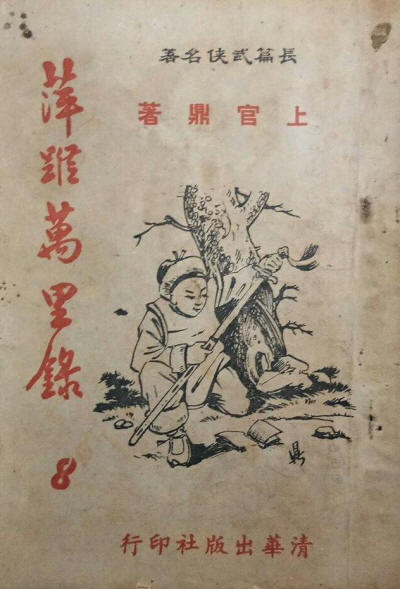 長篇武俠名著
上官鼎著
萍蹤萬里錄 8
鼎
清華出版社印行